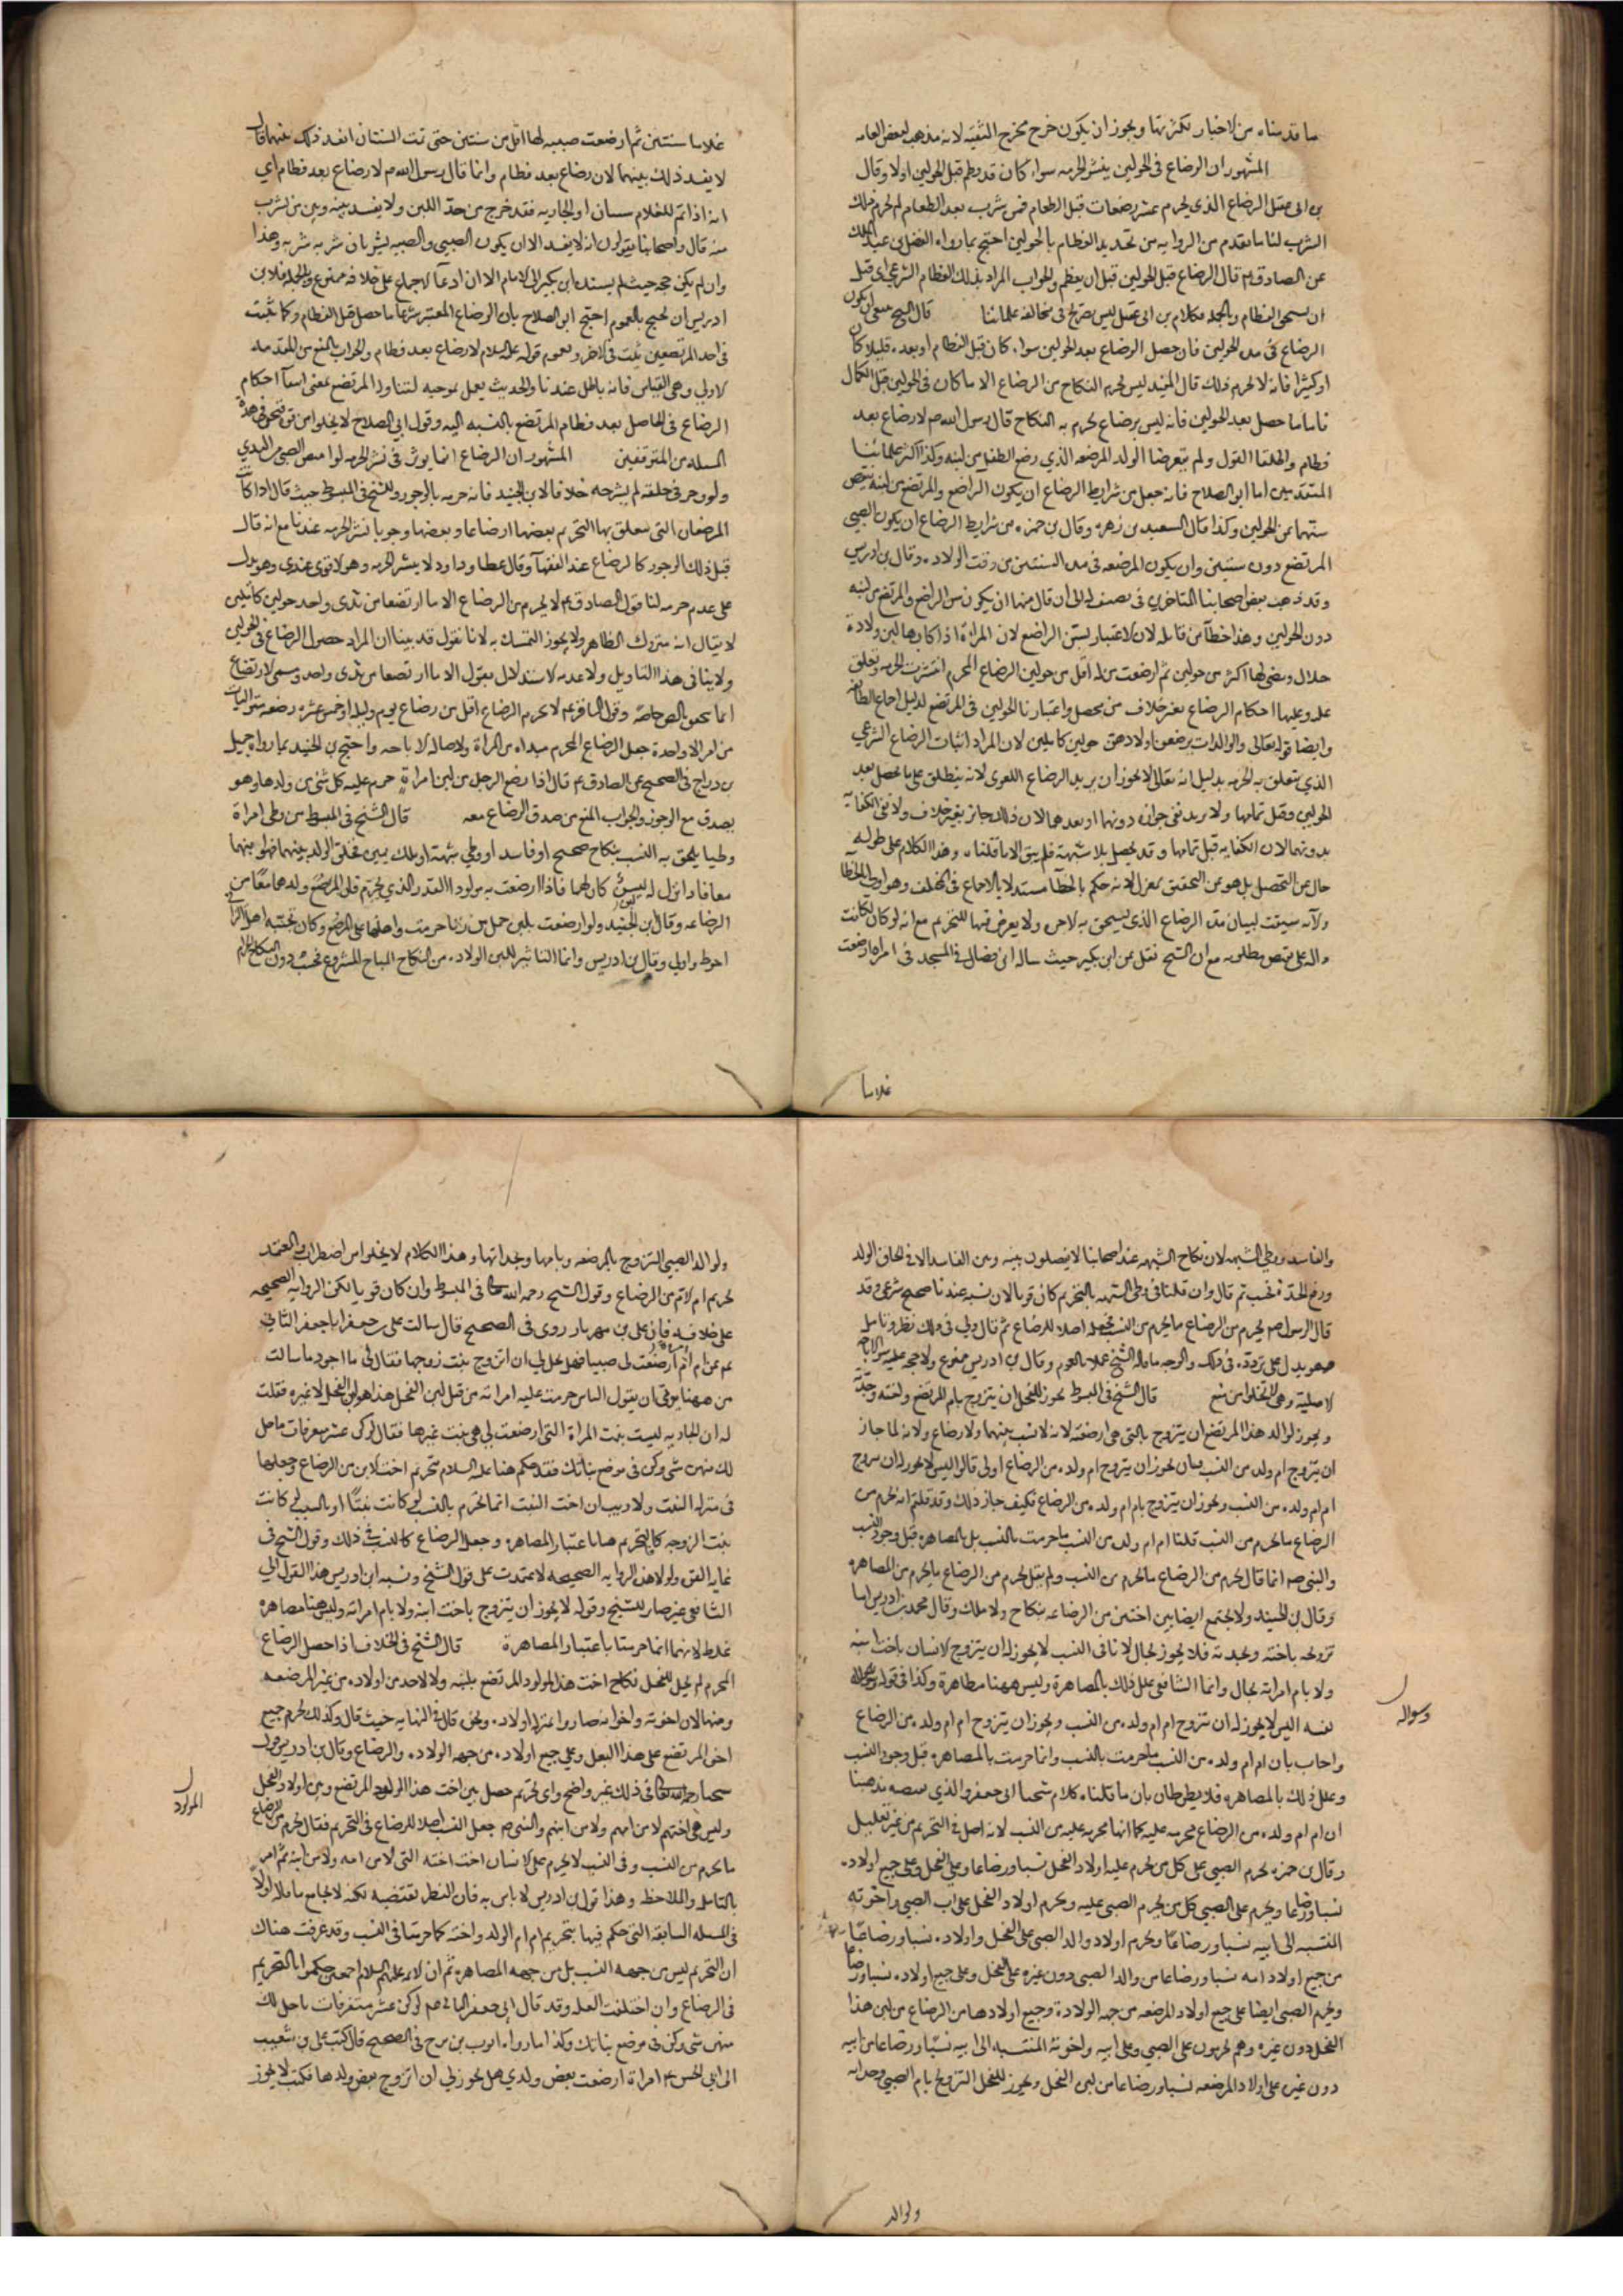 ما قدمناه من الاخبار لكثرتها ويجوز ان يكون خرج مخرج التقيه لانه مذهب لبعض العامه
المشهور ان الرضاع فى الحولين ينشر الحرمه سواء كان قد فطم قبل الحولين اولا وقال
بن ابى عقيل الرضاع الذى يحرم عشر رضعات قبل الطعام فمن شرب بعد الطعام لم يحرم ذلك
الشرب لنا ما تقدم من الروايه من تحديد الفطام بالحولين احتج بما رواه الفضل بن عبد الملك
عن الصادق ع قال الرضاع قبل الحولين قبل ان يفطم والجواب المراد بذلك الفطام الشرعى اى قبل
ان يستحق الفطام وبالجمله فكلام بن ابى عقيل ليس بصريح فى مخالفه علمائنا قال الشيخ ينبغى ان يكون
الرضاع فى مده الحولين فان حصل الرضاع بعد الحولين سواء كان قبل الفطام او بعده قليلا كان
او كثيرا فانه لا يحرم ذلك قال المفيد ليس يحرم النكاح من الرضاع الا ما كان فى الحولين قبل الكمال
فاما ما حصل بعد الحولين فانه ليس برضاع يحرم به النكاح قال رسول الله ص لا رضاع بعد
فطام واطلقا القول ولم يتعرضا لولد المرضعه الذي رضع الطفل من لبنه وكذا اكثر علمائنا
المتقدمين اما ابو الصلاح فانه جعل من شرايط الرضاع ان يكون الراضع والمرتضع من لبنه ينقص
سنهما عن الحولين وكذا قال السعيد بن زهره وقال بن حمزه من شرايط الرضاع ان يكون الصبى
المرتضع دون سنتين وان يكون المرضعه فى مده السنتين من وقت الولاده وقال بن ادريس
وقد ذهب بعض اصحابنا المتاخرين فى تصنيف له الى ان قال منهما ان يكون سن الراضع والمرتضع من لبنه
دون الحولين وهذا خطأ من قائله لان الاعتبار بسن الراضع لان المراة اذا كان بها لبن ولادة
حلال ومضى لها اكثر من حولين ثم ارضعت من له اقل من حولين الرضاع المحرم انتشرت الحرمه وتعلق
عليه وعليها احكام الرضاع بغير خلاف من محصل واعتبارنا الحولين فى المرتضع لدليل اجماع الطائفه
وايضا قوله تعالى والوالدات يرضعن اولادهن حولين كاملين لان المراد اثبات الرضاع الشرعي
الذي يتعلق به الحرمه بدليل انه تعالى لا يجوز ان يريد الرضاع اللغوى لانه ينطلق على ما يحصل بعد
الحولين وقبل تمامها ولا يريد نفى جوازه دونهما او بعدهما لان ذلك جائز بغير خلاف ولا نفى الكفاية
بدونهما لان الكفايه قبل تمامها وقد يحصل بلا شبهة فلم يبق الا ما قلناه وهذا الكلام على طوله
خال عن التحصيل بل هو عن التحقيق بمعزل لانه حكم بالخطأ مستدلا بالاجماع فى المختلف وهو اولى بالخطأ
ولانه سيقت لبيان مده الرضاع الذى يستحق به الاجر ولا تعرض فيها للتحريم مع انه لو كان لكانت
داله على نقيض مطلوبه مع ان الشيخ نقل عن ابن بكير حيث ساله ابن فضال فى المسجد فى امراه ارضعت
غلاما
غلاما سنتين ثم ارضعت صبيه لها اقل من سنتين حتى تمت السنتان ايفسد ذلك بينهما قال
لا يفسد ذلك بينهما لان رضاع بعد فطام وانما قال رسول الله ص لا رضاع بعد فطام اي
انه اذا تم للغلام سنتان او الجاريه فقد خرج من حد اللبن ولا يفسد بينه وبين من يشرب
منه قال واصحابنا يقولون انه لا يفسد الا ان يكون الصبى والصبيه يشربان شربه شربه وهذا
وان لم يكن حجه حيث لم يسنده ابن بكير الى الامام الا ان ادعاء الاجماع على خلافه ممنوع وبالجمله فلابن
ادريس ان يحتج بالعموم احتج ابو الصلاح بان الرضاع المعتبر شرعا ما حصل قبل الفطام وكما ثبت
فى احد المرتضعين يثبت فى الاخر ولعموم قوله عليه السلام لا رضاع بعد فطام والجواب بالمنع من المقدمه
الاولى وهى القياس فانه باطل عندنا والحديث يعمل بموجبه لتناوله المرتضع بمعنى انتفاء احكام
الرضاع فى الحاصل بعد فطام المرتضع بالنسبه اليه وقول ابى الصلاح لا يخلو من قوه فنحن فى هذه
المسئله من المتوقفين المشهور ان الرضاع انما يوثر فى نشر الحرمه لو امتص الصبى من الثدي
ولو وجر فى حلقه لم ينشر حرمه خلافا لابن الجنيد فانه حرم بالوجور وللشيخ فى المبسوط حيث قال اذا كانت
المرضعات التى يتعلق بها التحريم بعضها ارضاعا وبعضها وجورا نشر الحرمه عندنا مع انه قال
قبل ذلك الوجور كالرضاع عند الفقهاء وقال عطا وداود لا ينشر الحرمه وهو الاقوى عندى وهو يدل
على عدم حرمه لنا قول الصادق ع لا يحرم من الرضاع الا ما ارتضعا من ثدى واحد حولين كاملين
لا يقال انه متروك الظاهر ولا يجوز التمسك به لانا نقول قد بينا ان المراد حصول الرضاع فى الحولين
ولا ينافى هذا التاويل ولا عدمه الاستدلال بقوله الا ما ارتضعا من ثدى واحد ومسمى الارتضاع
انما يتحقق بالمص خاصه وقول الباقر ع لا يحرم الرضاع اقل من رضاع يوم وليله او خمس عشره رضعه متواليات
من امراه واحدة جعل الرضاع المحرم مبداه من المراة ولاصاله الاباحه واحتج بن الجنيد بما رواه جميل
بن دراج فى الصحيح عن الصادق ع قال اذا رضع الرجل من لبن امراة حرم عليه كل شئ من ولدها وهو
يصدق مع الوجور والجواب المنع من صدق الرضاع معه قال الشيخ فى المبسوط من وطى امراة
وطيا يلحق به النسب بنكاح صحيح او فاسد او وطي شبهة او بملك يمين فخلق الولد بينهما فهو ابنهما
معا فاذا نزل له لبن كان لهما فاذا ارضعت به مولودا القدر الذي يحرم فان المرضع ولدهما معا من
الرضاعه وقال ابن الجنيد ولو ارضعت بلبن حمل من زنا حرمت واهلها على المرضع وكان تجنبه اهل الزانى
احوط واولى وقال بن ادريس وانما التاثير للبن الولاده من النكاح المباح المشروع فحسب دون النكاح الحرام
والفاسد ووطى الشبهه لان نكاح الشبهه عند اصحابنا لا يفصلون بينه وبين الفاسد الا فى الحاق الولد
ورفع الحد فحسب ثم قال وان قلنا فى وطى الشبهه بالتحريم كان قويا لان نسبه عندنا صحيح شرعى وقد
قال الرسول ص يحرم من الرضاع ما يحرم من النسب فجعله اصلا للرضاع ثم قال ولى فى ذلك نظر وتامل
فهو يدل على تردده فى ذلك والوجه ما قاله الشيخ عملا بالعموم وقول بن ادريس ممنوع ولا حجه عليه سوى الاباحه
الاصلية وهى لا تخلو من منع قال الشيخ فى المبسوط يجوز للفحل ان يتزوج بام المرتضع واخته وجدته
ويجوز لوالد هذا المرتضع ان يتزوج بالتى هى ارضعته لانه لا نسب بينهما ولا رضاع ولانه لما جاز
ان يتزوج ام ولده من النسب فبان يجوز ان يتزوج ام ولده من الرضاع اولى قالوا اليس لا يجوز ان يتزوج
ام ام ولده من النسب ويجوز ان يتزوج بام ام ولده من الرضاع فكيف جاز ذلك وقد قلتم انه يحرم من
الرضاع ما يحرم من النسب قلنا ام ام ولده من النسب ما حرمت بالنسب بل بالمصاهره قبل وجود النسب
والنبى ص انما قال يحرم من الرضاع ما يحرم من النسب ولم يقل يحرم من الرضاع ما يحرم من المصاهره
وقال بن الجنيد ولا يجتمع ايضا بين اختين من الرضاعه بنكاح ولا ملك وقال محمد بن ادريس اما
تزوجه باخته وبجدته فلا يجوز بحال لانا فى النسب لا يجوز له ان يتزوج الانسان باخت ابنه
ولا بام امراته بحال وانما الشافعى علل ذلك بالمصاهره وليس ههنا مصاهرة وكذا فى قوله وسؤاله
وسواله
نفسه اليس لا يجوز له ان يتزوج ام ام ولده من النسب ويجوز ان يتزوج ام ام ولده من الرضاع
واجاب بان ام ام ولده من النسب ما حرمت بالنسب وانما حرمت بالمصاهره قبل وجود النسب
وعلل ذلك بالمصاهره فلا يظن ظان بان ما قلناه كلام شيخنا ابى جعفر والذى يقتضيه مذهبنا
ان ام ام ولده من الرضاع محرمه عليه كما انها محرمه عليه من النسب لانه اصل فى التحريم من غير تعليل
وقال بن حمزه يحرم الصبى على كل من يحرم عليه اولاد الفحل نسبا ورضاعا وعلى الفحل وعلى جميع اولاده
نسبا ورضاعا ويحرم على الصبي كل من يحرم الصبى عليه ويحرم اولاد الفحل على اب الصبى واخوته
المنتسبه الى ابيه نسبا ورضاعا ويحرم اولاد والد الصبى على الفحل واولاده نسبا ورضاعا
من جميع اولاد امه نسبا ورضاعا من والد الصبى دون غيره على الفحل وعلى جميع اولاده نسبا ورضاعا
ويحرم الصبى ايضا على جميع اولاد المرضعه من جهه الولادة وجميع اولادها من الرضاع من لبن هذا
الفحل دون غيره وهم يحرمون على الصبي وعلى ابيه واخوته المنتسبه الى ابيه نسبا ورضاعا من ابيه
دون غيره على اولاد المرضعه نسبا ورضاعا من لبن الفحل ويجوز للفحل التزوج بام الصبى وجداته
ولوالد
ولوالد الصبى التزوج بالمرضعه وبامها وبجداتها وهذا الكلام لا يخلو من اضطراب والمعتمد
تحريم ام الام من الرضاع وقول الشيخ رحمه الله تعالى فى المبسوط وان كان قويا لكن الروايه الصحيحه
على خلافه فان على بن مهزيار روى فى الصحيح قال سالت على بن جعفر ابا جعفر الثانى
ع عن امراة ارضعت لى صبيا فهل يحل لي ان اتزوج بنت زوجها فقال لى ما اجود ما سالت
من ههنا يوتى ان يقول الناس حرمت عليه امراته من قبل لبن الفحل هذا هو لبن الفحل لا غيره فقلت
له ان الجاريه ليست بنت المراة التى ارضعت لى هى بنت غيرها فقال لو كن عشر متفرقات ما حل
لك منهن شى وكن فى موضع بناتك فقد حكم هنا عليه السلام بتحريم اخت الابن من الرضاع وجعلها
فى منزله البنت ولا ريب ان اخت البنت انما تحرم بالنسب لو كانت بنتا او بالسبب لو كانت
بنت الزوجه فالتحريم هنا باعتبار المصاهره وجعل الرضاع كالنسب فى ذلك وقول الشيخ فى
غايه القوه ولولا هذه الروايه الصحيحه لاعتمدت على قول الشيخ ونسبه ابن ادريس هذا القول الى
الشافعى غير ضار للشيخ وقوله لا يجوز ان يتزوج باخت ابنه ولا بام امراته وليس هنا مصاهره
غلط لانهما انما حرمتا باعتبار المصاهرة قال الشيخ فى الخلاف اذا حصل الرضاع
المحرم لم يحل للفحل نكاح اخت هذا المولود المرتضع بلبنه ولا لاحد من اولاده من غير المرضعه
ومنها لان اخوته واخواته صاروا بمنزله اولاده ونحوه قال فى النهايه حيث قال وكذلك يحرم جميع
اخوه المرتضع على هذا البعل وعلى جميع اولاده من جهه الولاده والرضاع وقال بن ادريس قول
شيخنا رحمه الله تعالى فى ذلك غير واضح واى تحريم حصل بين اخت هذا المولود المرتضع وبين اولاد الفحل
المولود
وليس هى اختهم لا من امهم ولا من ابيهم والنبى ص جعل النسب اصلا للرضاع فى التحريم فقال يحرم من الرضاع
ما يحرم من النسب وفى النسب لا يحرم على الانسان اخت اخته التى لا من امه ولا من ابيه ثم امر
بالتامل والملاحظه وهذا قول بن ادريس لا باس به فان النظر يقتضيه لكنه لا يجامع ما قاله اولا
فى المسله السابقه التى حكم فيها بتحريم ام ام الولد واخته كما حرمتا فى النسب وقد عرفت هناك
ان التحريم ليس من جهه النسب بل من جهه المصاهره ثم ان الائمه عليهم السلام اجمعين حكموا بالتحريم
فى الرضاع وان اختلفت العله وقد قال ابى جعفر الثانى ع لو كن عشر متفرقات ما حل لك
منهن شى وكن فى موضع بناتك وكذا ما رواه ايوب بن نوح فى الصحيح قال كتب على بن شعيب
الى ابى الحسن ع امراة ارضعت بعض ولدي هل يجوز لي ان اتزوج بعض ولدها فكتب لا يجوز